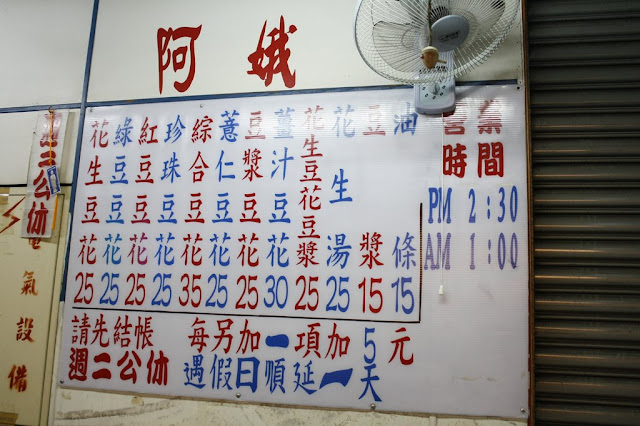 阿娥
花生豆花25
綠豆豆花25
紅豆豆花25
珍珠豆花25
綜合豆花35
薏仁豆花25
豆漿豆花25
薑汁豆花30
花生豆花豆漿25
花生湯25
豆漿15
油條15
營業
時間
PM 2:30
AM 1:00
請先結帳 每另加一項加5元
週二公休 遇假日順延一天
週二公休
電氣設備